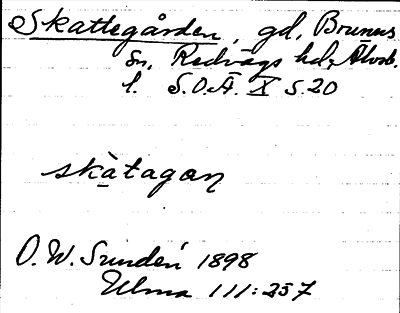 Skattegården, gd, Brunns
sn, Redvägs hd, Älvsb.
l. S.O.Ä. X s. 20
skàtagan
O. W. Sundén 1898
Ulma 111:257